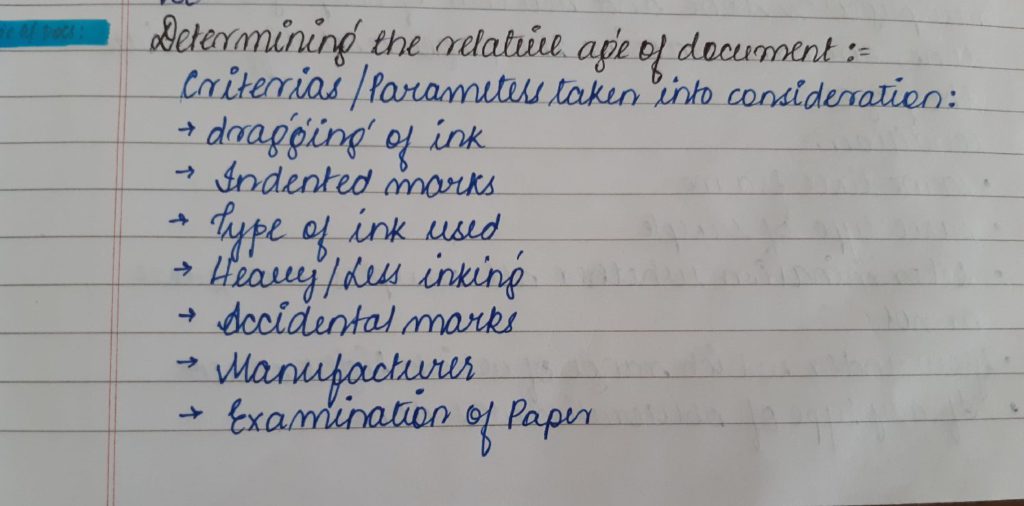 Determining the relative age of document :=
Criterias/Parameters taken into consideration:
→ dragging of ink
→ Indented marks
→ Type of ink used
→ Heavy/Less inking
→ Accidental marks
→ Manufacturer
→ Examination of Paper